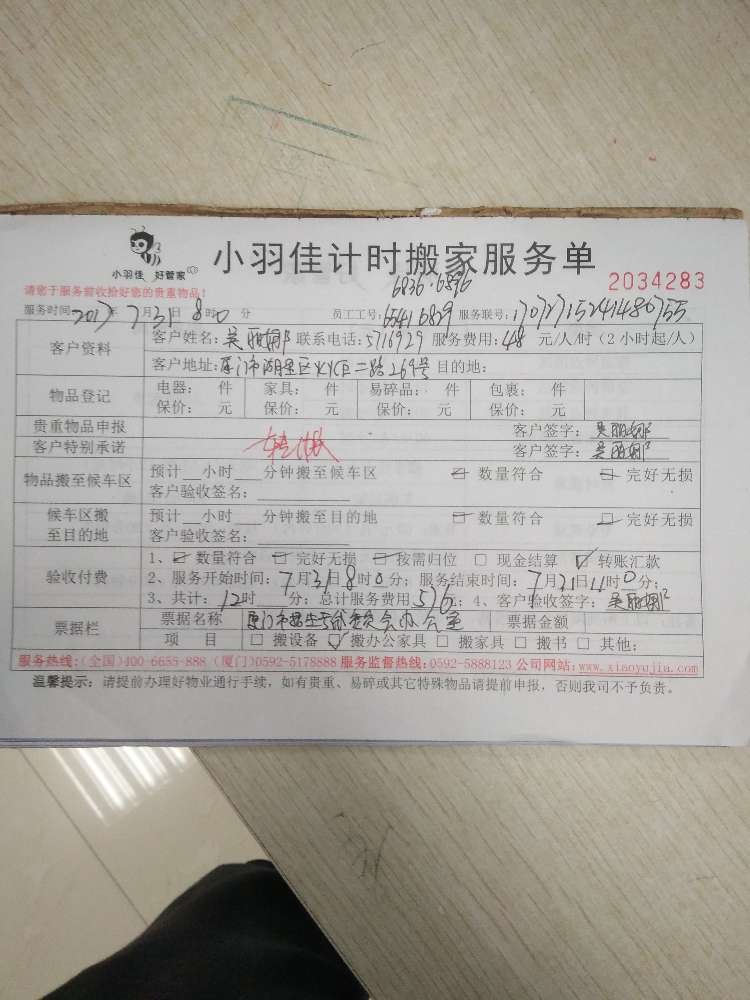 小羽佳 好管家
小羽佳计时搬家服务单
2034283
请您于服务前收拾好您的贵重物品！
6836.6896
服务时间: 2017年7月31日8时0分 员工工号: 6541 6829 服务联号: 17072715241480755
客户资料
客户姓名: 吴丽娜 联系电话: 5716929 服务费用: 48 元/人/时（2小时起/人）
客户地址: 厦门市湖里区火炬二路269号 目的地:
物品登记
电器: 件 家具: 件 易碎品: 件 包裹: 件
保价: 元 保价: 元 保价: 元 保价: 元
贵重物品申报 客户签字: 吴丽娜
客户特别承诺 客户签字: 吴丽娜
物品搬至候车区
预计 小时 分钟搬至候车区 数量符合 完好无损
客户验收签名:
候车区搬至目的地
预计 小时 分钟搬至目的地 数量符合 完好无损
客户验收签名:
验收付费
1、数量符合 完好无损 按需归位 □ 现金结算 ☑ 转账汇款
2、服务开始时间: 7月31日8时0分; 服务结束时间: 7月31日11时0分;
3、共计: 12时 分; 总计服务费用 576元; 4、客户验收签字: 吴丽娜
票据栏
票据名称 厦门市招生考试委员会办公室 票据金额
项 目 □ 搬设备 ☑ 搬办公家具 □ 搬家具 □ 搬书 □ 其他:
服务热线:(全国)400-6655-888 (厦门)0592-5178888 服务监督热线:0592-5888123 公司网站:www.xiaoyujia.com
温馨提示: 请提前办理好物业通行手续，如有贵重、易碎或其它特殊物品请提前申报，否则我司不予负责。